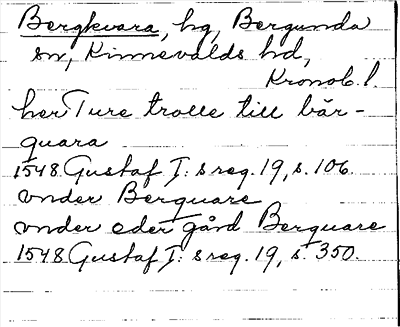 Bergkvara, hg, Bergunda
sn, Kinnevalds hd,
Kronob. l.
her Ture trolle till bär-
quara
1548 Gustaf I: s reg. 19, s. 106.
vnder Berquare
vnder eder gård Berquare
1548 Gustaf I: s reg. 19, s. 350.